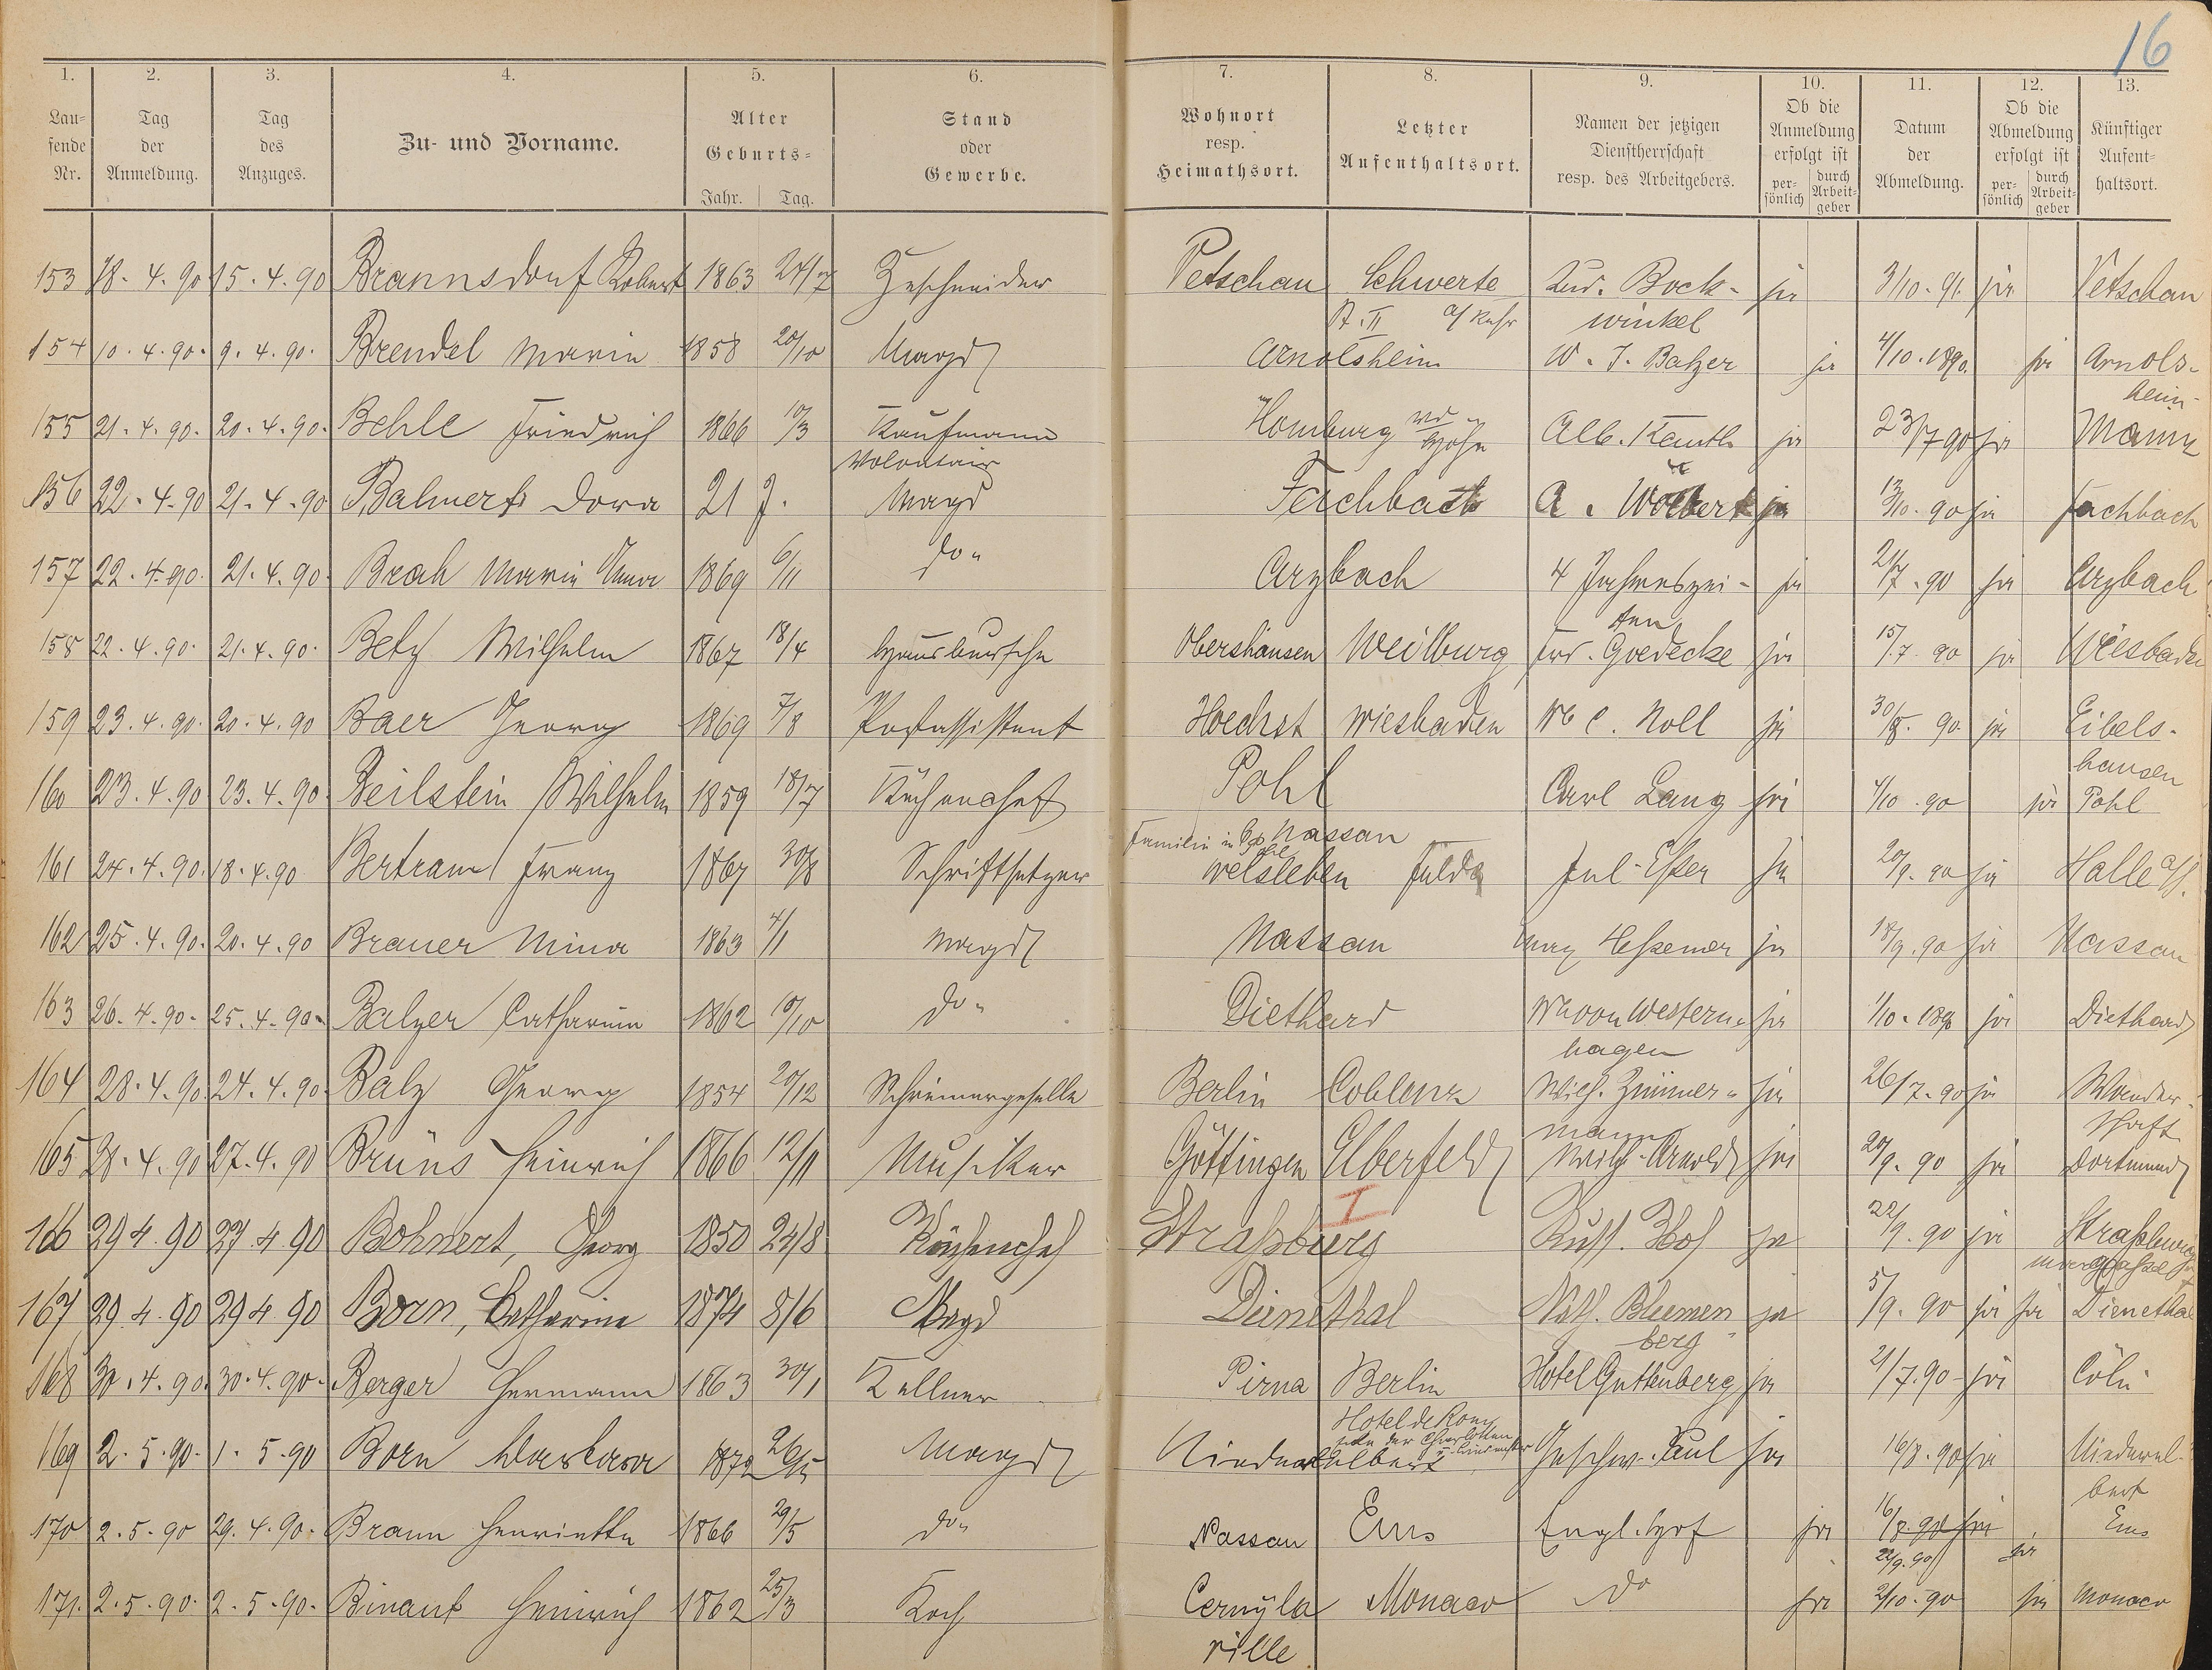 16
1. 2. 3. 4. 5. 6. 7. 8. 9. 10. 11. 12. 13.
Lau-
fende
Nr.
Tag
der
Anmeldung.
Tag
des
Anzuges.
Zu- und Vorname.
Alter
Geburts-
Jahr. Tag.
Stand
oder
Gewerbe.
Wohnort
resp.
Heimathsort.
Letzter
Aufenthaltsort.
Namen der jetzigen
Dienstherrschaft
resp. des Arbeitgebers.
Ob die
Anmeldung
erfolgt ist
per-
sönlich
durch
Arbeit-
geber
Datum
der
Abmeldung.
Ob die
Abmeldung
erfolgt ist
per-
sönlich
durch
Arbeit-
geber
Künftiger
Aufent-
haltsort.
153 18. 4. 90 15. 4. 90 Brannsdorf Robert 1863 24/7 Zuschneider Vetschau Schwerte Lud. Bock- ja 3/10. 91. ja Vetschau
A. II a/ Ruhr winkel
154 10. 4. 90. 9. 4. 90. Brendel Marie 1858 20/10 Magd Arnolsheim W. J. Balzer ja 4/10. 1890. ja Arnols-
heim
155 21. 4. 90. 20. 4. 90. Behle Friedrich 1866 10/3 Kaufmann Homburg vd Höhe Alb. Kauth ja 23/7 90 ja Mainz
Volontair
156 22. 4. 90 21. 4. 90 Balmert Dora 21 J. Magd Fachbach A. Wölbert ja 13/10. 90 ja Fachbach
157 22. 4. 90. 21. 4. 90 Brah Marie Anna 1869 6/11 do. Arzbach 4 Jahreszei- ja 21/7. 90 ja Arzbach
ten
158 22. 4. 90. 21. 4. 90. Betz Wilhelm 1867 18/4 Hausbursche Obershausen Weilburg Frd. Goedecke ja 15/7 90 ja Wiesbaden
159 23. 4. 90. 20. 4. 90 Baer Georg 1869 7/8 Postassistent Hoechst Wiesbaden Wb C. Noll ja 30/8. 90. ja Eibels-
hausen
160 23. 4. 90 23. 4. 90 Beilstein Wilhelm 1859 18/7 Küchenchef Pohl Carl Lang ja 4/10. 90 ja Pohl
Familie in Nassau
161 24. 4. 90. 18. 4. 90 Bertram Franz 1867 30/8 Schriftsetzer Welsleben Fulda Jul. Esser ja 20/9. 90 ja Halle a/S.
162 25. 4. 90. 20. 4. 90 Brauer Mina 1863 4/1 Magd Nassau Max Hessemer ja 18/9. 90 ja Nassau
163 26. 4. 90. 25. 4. 90. Balzer Catharina 1862 10/10 do. Diethard Wb von Western- ja 1/10. 1890 ja Diethard
hagen
164 28. 4. 90. 24. 4. 90. Balz Georg 1854 20/12 Schreinergeselle Berlin Coblenz Wilh. Zimmer- ja 26/7. 90 ja Wander-
mann schaft
165 28. 4. 90 27. 4. 90 Brüns Heinrich 1866 12/11 Musiker Göttingen Elberfeld Wilh. Arnold ja 20/9. 90 ja Dortmund
I
166 29 4. 90 27. 4. 90 Bohnert, Georg 1850 24/8 Küchenchef Straßburg Russ. Hof ja 22/9. 90 ja Straßburg
167 29 4. 90 29 4. 90 Born, Catharine 1874 8/6 Magd Dienethal Nath. Blumen ja 5/9. 90 ja ja Dienethal
berg
168 30. 4. 90. 30. 4. 90. Berger Hermann 1863 30/1 Kellner Pirna Berlin Hotel Guttenberg ja 21/7. 90 ja Cöln
Hotel de Rome
Ecke der Charlotten
169 2. 5. 90. 1. 5. 90 Born Barbara 1872 26/5 Magd Niederelbert Geschw. Paul ja 16/8. 90 ja Niederel-
bert
170 2. 5. 90 29. 4. 90. Braun Henriette 1866 29/5 do. Nassau Ems Engl. Hof ja 16/8. 90 ja Ems
22/9. 90 ja
171. 2. 5. 90. 2. 5. 90. Binant Heinrich 1862 25/3 Koch Cernyla Monaco do ja 2/10. 90 ja Monaco
ville